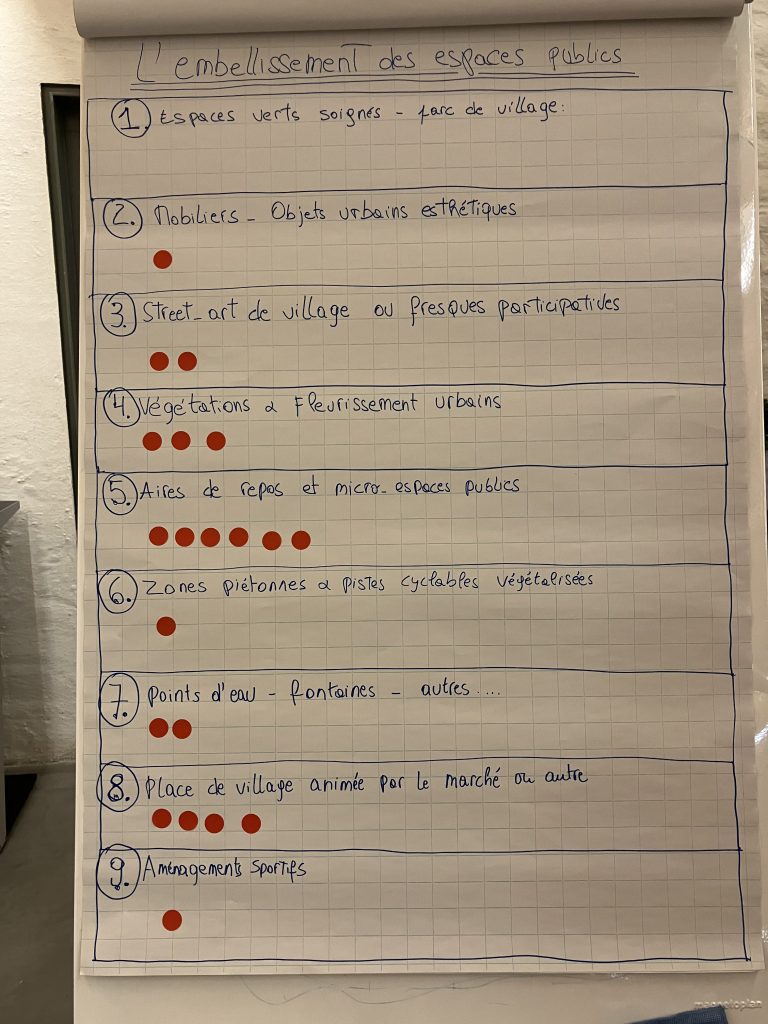 L'embellissement des espaces publics
1. Espaces verts soignés - parc de village:
2. Mobiliers - Objets urbains esthétiques
3. Street-art de village ou fresques participatives
4. Végétations & Fleurissement urbains
5. Aires de repos et micro-espaces publics
6. Zones piétonnes & pistes cyclables végétalisées
7. Points d'eau - fontaines - autres....
8. Place de village animée par le marché ou autre
9. Aménagements sportifs
magnetoplan